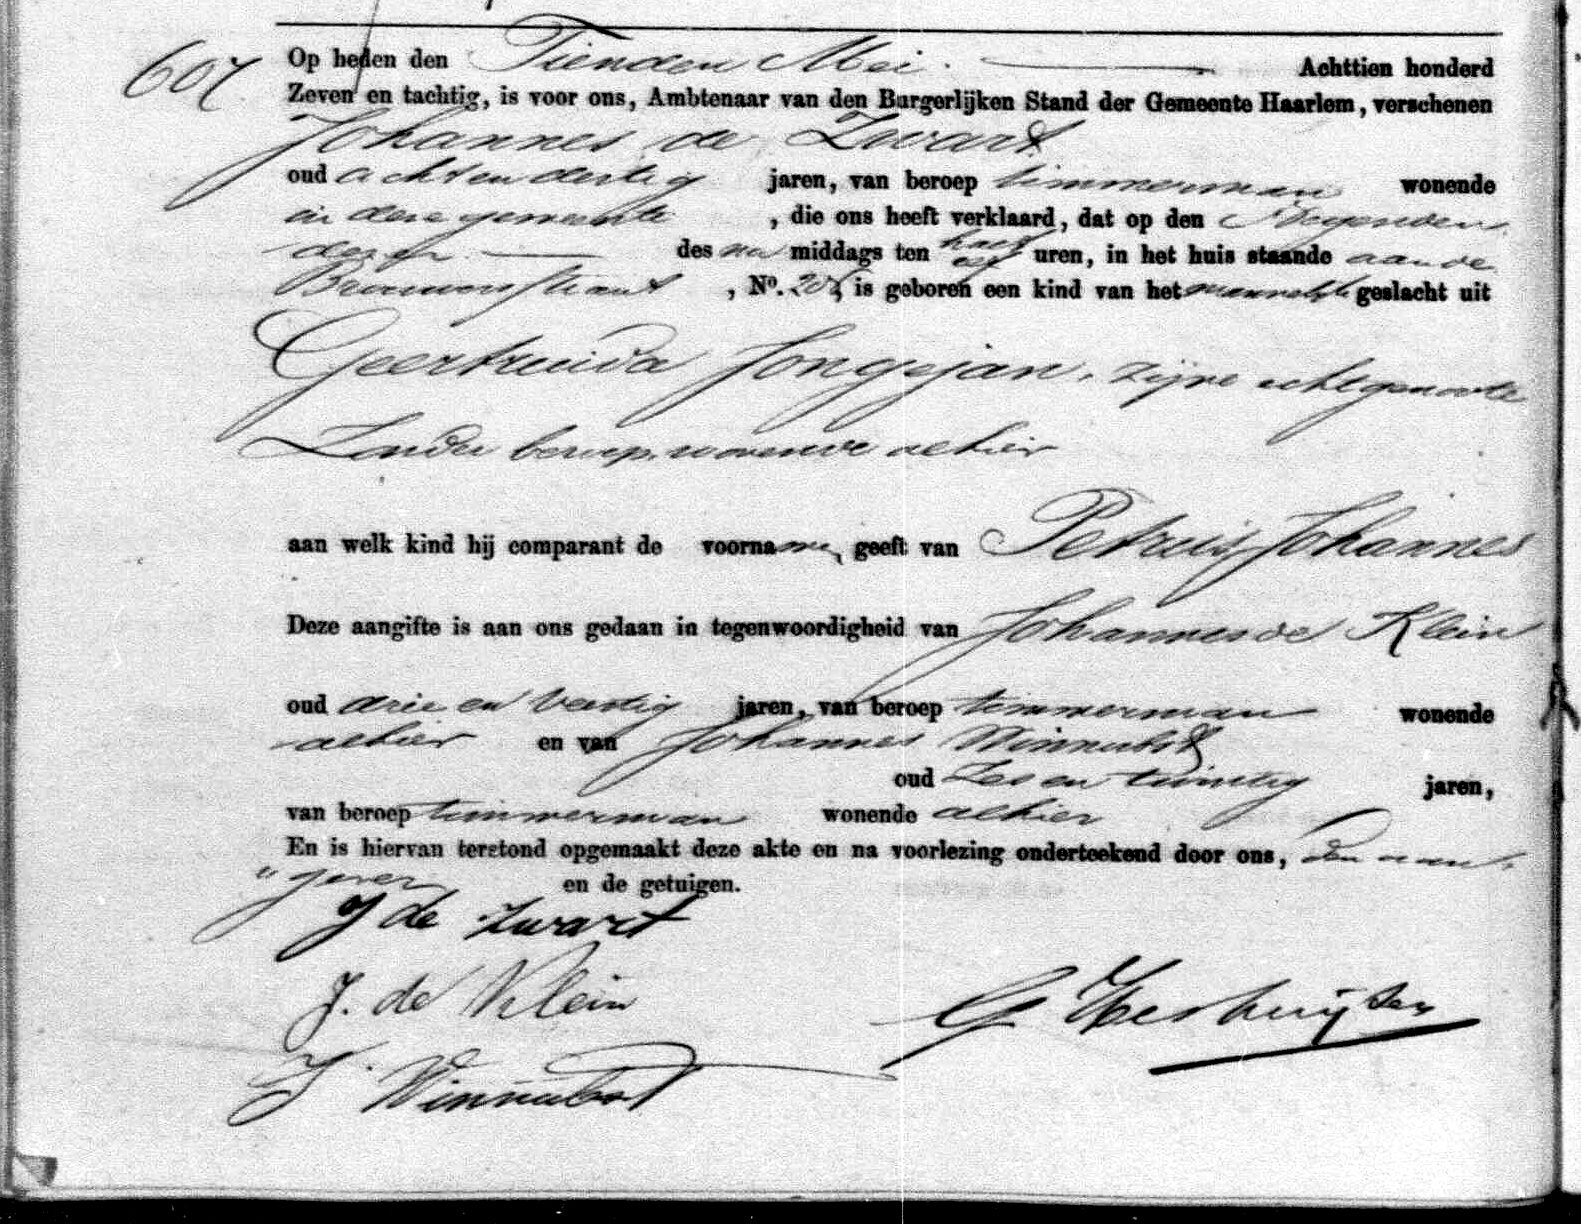 607
Op heden den Tienden Mei. Achttien honderd
Zeven en tachtig, is voor ons, Ambtenaar van den Burgerlijken Stand der Gemeente Haarlem, verschenen
Johannes de Zwart
oud acht en dertig jaren, van beroep timmerman wonende
in deze gemeente, die ons heeft verklaard, dat op den Negenden
dezer des na middags ten half elf uren, in het huis staande aan de
Brouwersstraat, No. is geboren een kind van het mannelijk geslacht uit
Geertruida Jongejan, zijne echtgenoote
Zonder beroep, wonende alhier
aan welk kind hij comparant de voornamen geeft van Petrus Johannes
Deze aangifte is aan ons gedaan in tegenwoordigheid van Johannes de Klein
oud drie en veertig jaren, van beroep timmerman wonende
alhier en van Johannes Winnubst
oud Zes en twintig jaren,
van beroep timmerman wonende alhier
En is hiervan terstond opgemaakt deze akte en na voorlezing onderteekend door ons, den aan-
"gever en de getuigen.
J de Zwart
J. de Klein
G
J. Winnubst